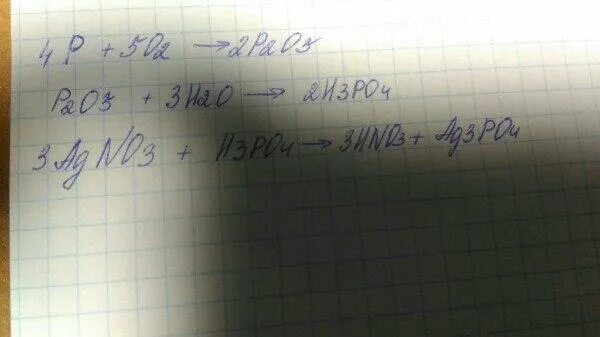 4P + 5O2 → 2P2O5
P2O5 + 3H2O → 2H3PO4
3AgNO3 + H3PO4 → 3HNO3 + Ag3PO4